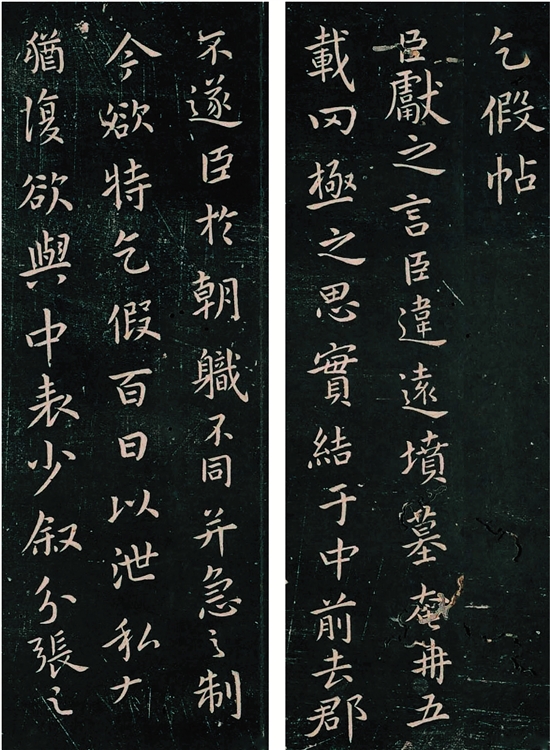 乞假帖
臣獻之言臣違遠墳墓奄冉五
載罔極之思實結于中前去郡
不遂臣於朝軄不同并急之制
今欲特乞假百日以泄私
猶復欲與中表少叙分張之